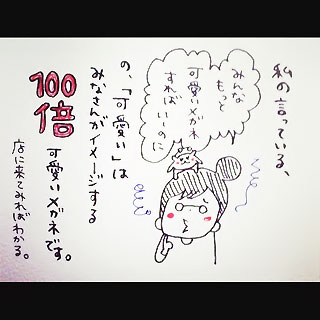 私の言っている、
みんな
もっと
可愛いメガネ
すればいーのに
の、「可愛い」は
みなさんがイメージする
100倍
可愛いメガネです。
店に来てみればわかる。